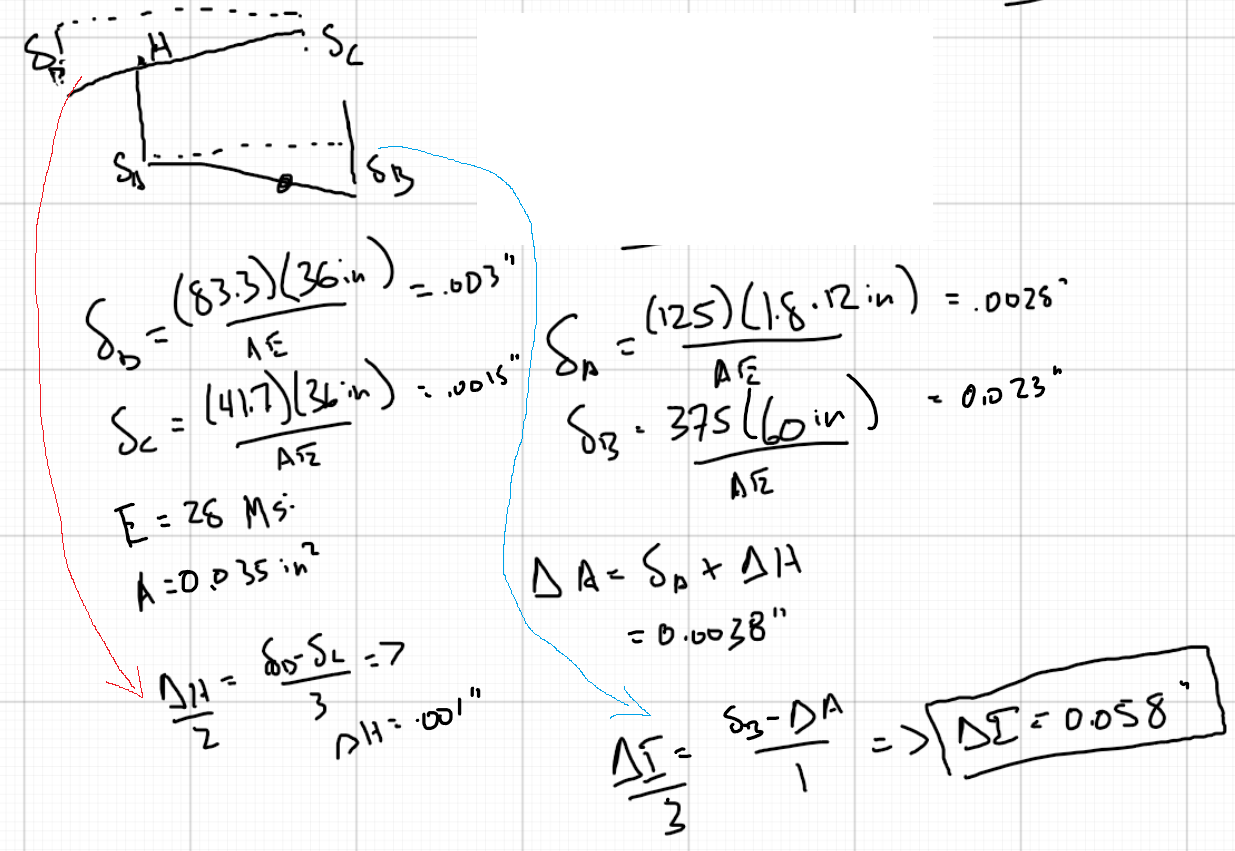 δD H δC
δA δB
δD = (83.3)(36in) / AE = .003"
δC = (41.7)(36in) / AE = .0015"
E = 28 Msi
A = 0.035 in²
ΔH / 2 = δD - δC / 3 =>
ΔH = .001"
δA = (125)(1.8·12in) / AE = .0028"
δB = 375(60in) / AE = 0.023"
ΔA = δA + ΔH
= 0.0038"
ΔI / 3 = δB - ΔA / 1 => ΔI = 0.058"